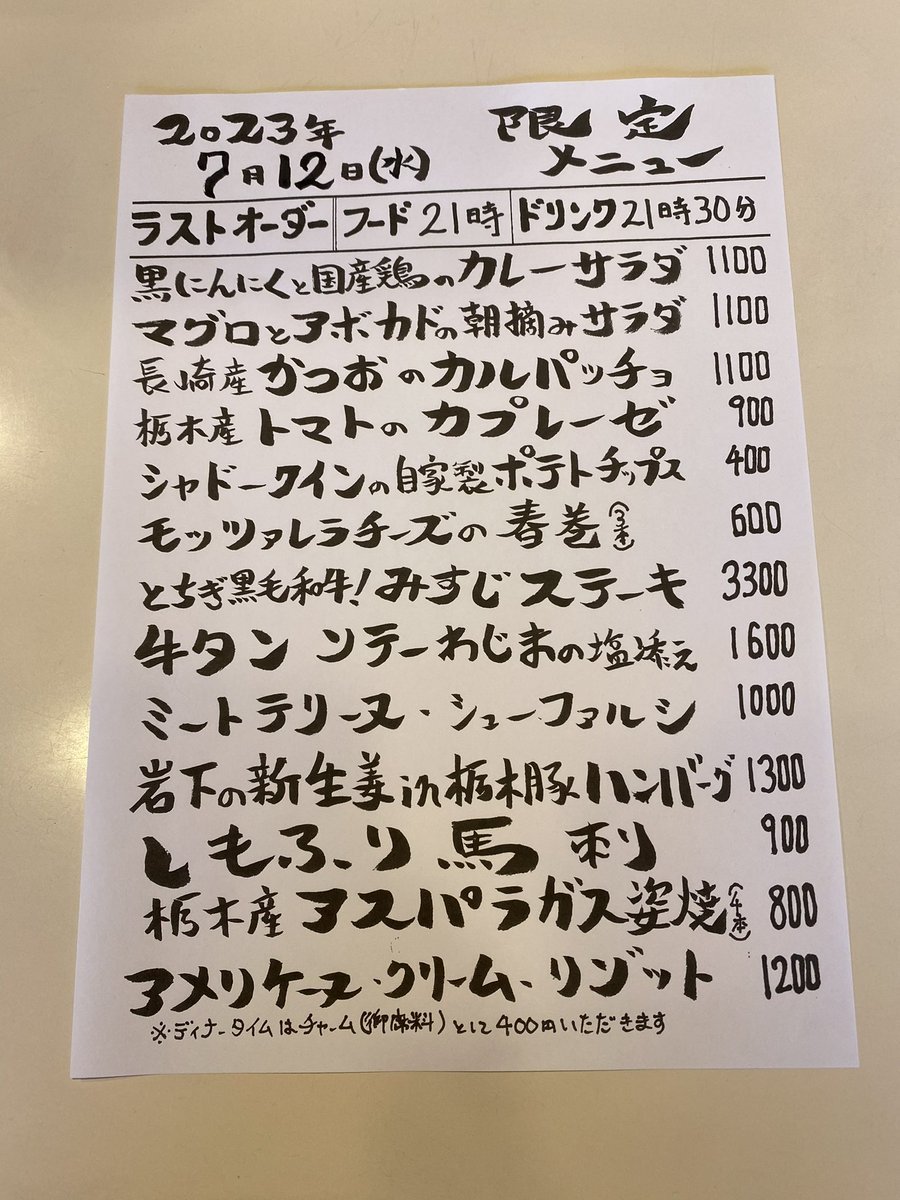 2023年
7月12日(水)
限定
メニュー
ラストオーダー フード21時 ドリンク21時30分
黒にんにくと国産鶏のカレーサラダ 1100
マグロとアボカドの朝摘みサラダ 1100
長崎産かつおのカルパッチョ 1100
栃木産トマトのカプレーゼ 900
シャドークインの自家製ポテトチップス 400
モッツァレラチーズの春巻(3本) 600
とちぎ黒毛和牛!みすじステーキ 3300
牛タンソテーわじまの塩添え 1600
ミートテリーヌ・シューファルシ 1000
岩下の新生姜in栃木豚ハンバーグ 1300
しもふり馬刺 900
栃木産アスパラガス姿焼(4本) 800
アメリケーヌ・クリーム・リゾット 1200
※ディナータイムはチャーム(御席料)として400円いただきます